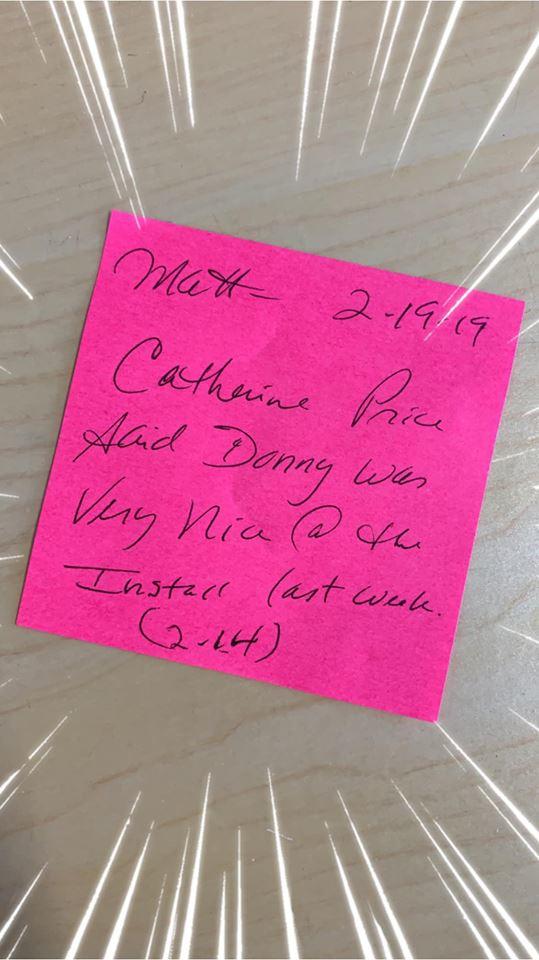 Matt- 2-19-19
Catherine Price
said Donny was
Very Nice @ the
Install last week.
(2-14)